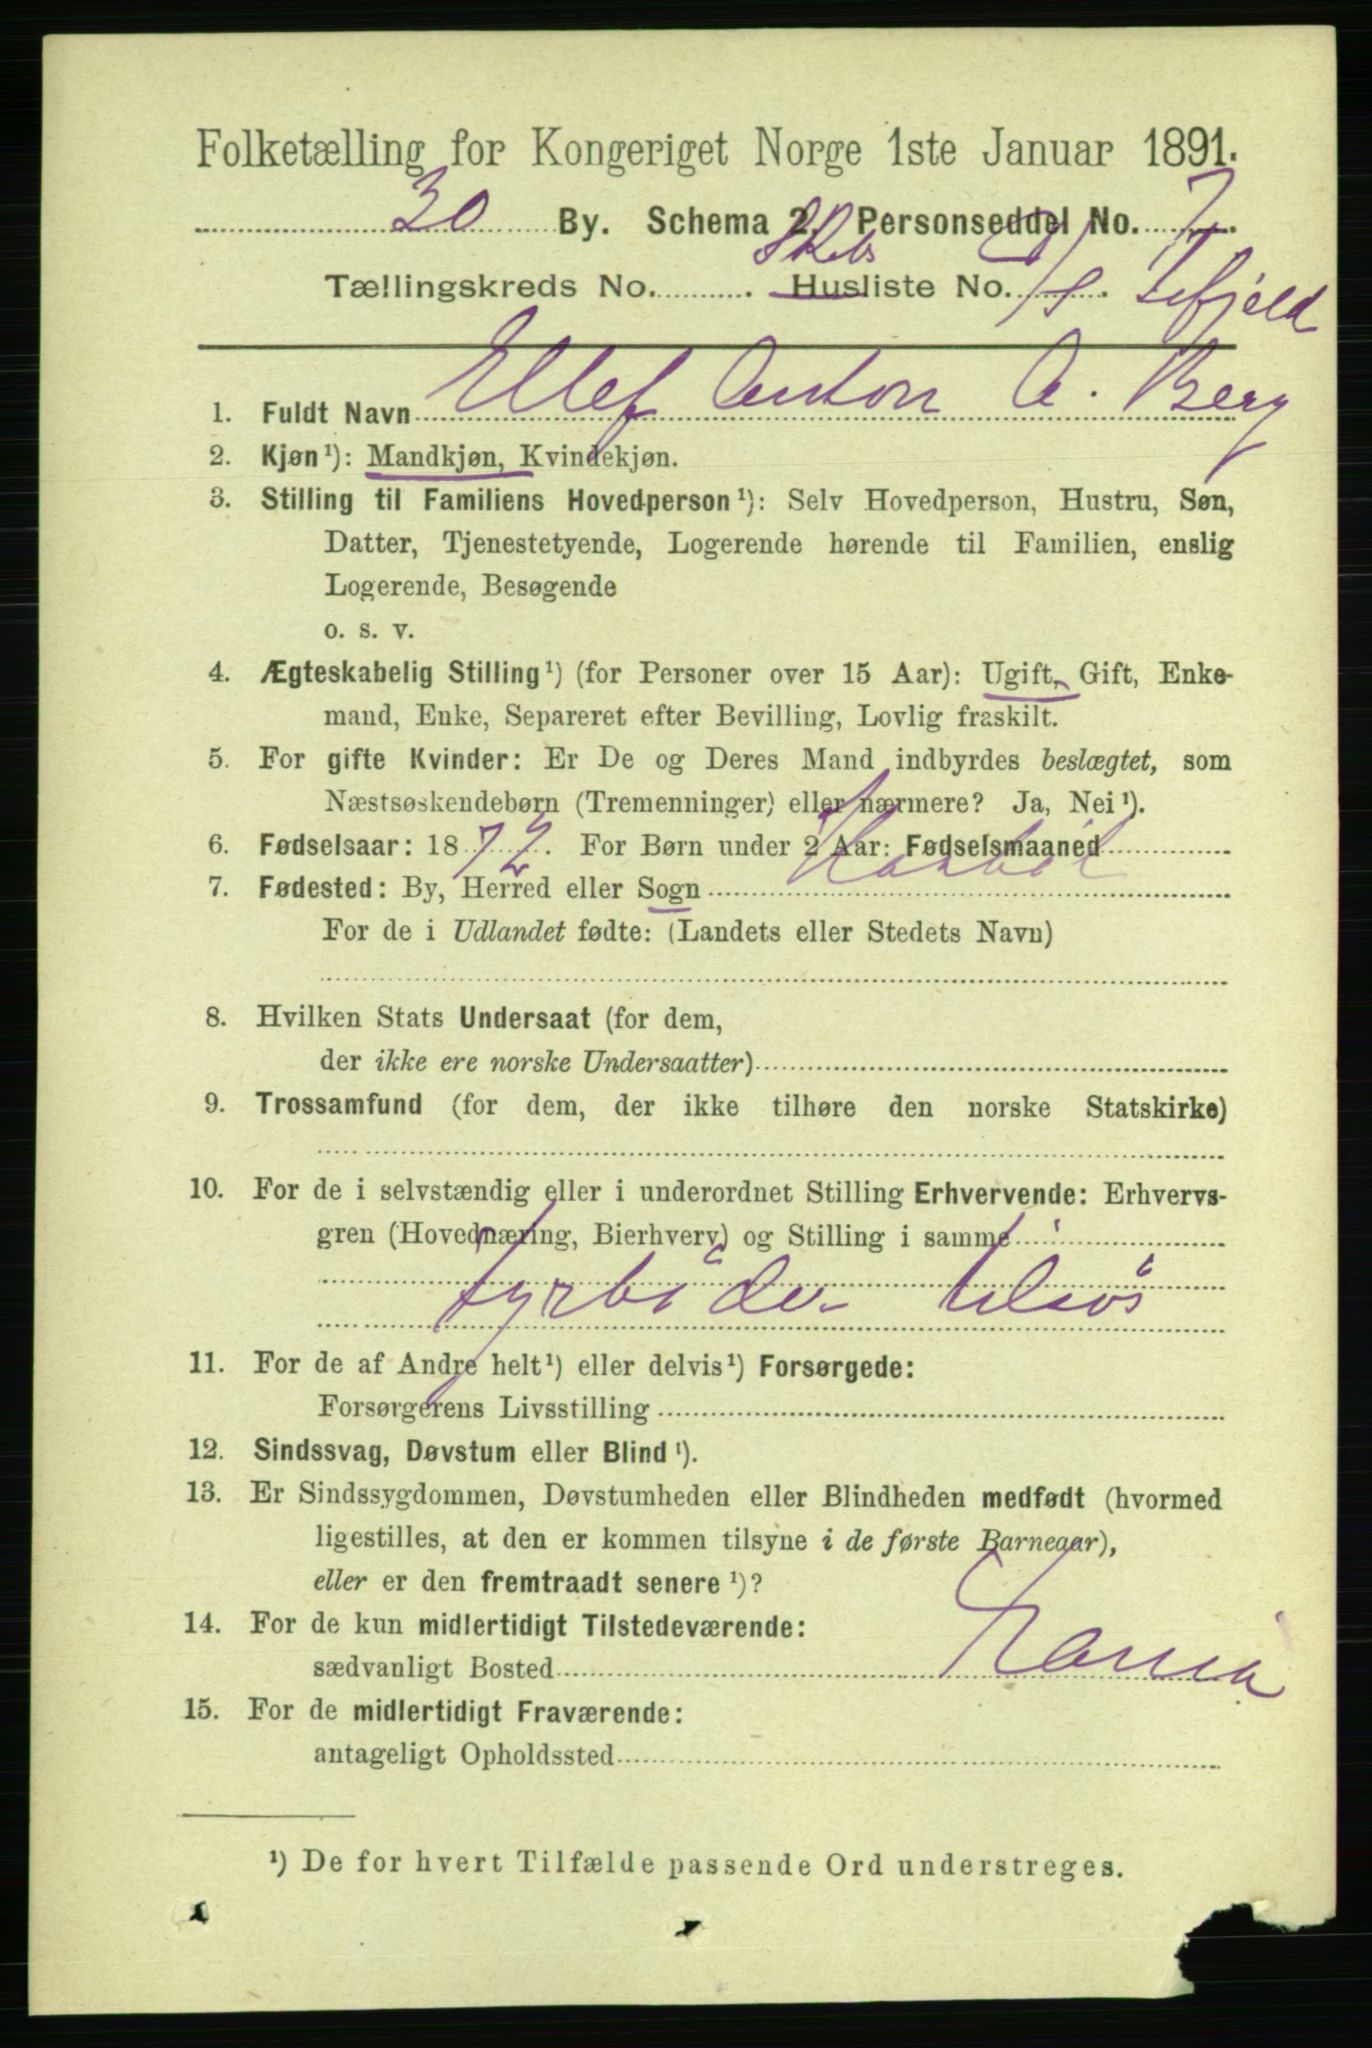 Folketælling for Kongeriget Norge 1ste Januar 1891.
30 By. Schema 2. Personseddel No. 7.
Tællingskreds No. Skibs Husliste No. D/S Lefjeld
1. Fuldt Navn Ellef Anton A. Berg
2. Kjøn¹): Mandkjøn, Kvindekjøn.
3. Stilling til Familiens Hovedperson¹): Selv Hovedperson, Hustru, Søn,
Datter, Tjenestetyende, Logerende hørende til Familien, enslig
Logerende, Besøgende
o. s. v.
4. Ægteskabelig Stilling¹) (for Personer over 15 Aar): Ugift, Gift, Enke-
mand, Enke, Separeret efter Bevilling, Lovlig fraskilt.
5. For gifte Kvinder: Er De og Deres Mand indbyrdes beslægtet, som
Næstsøskendebørn (Tremenninger) eller nærmere? Ja, Nei¹).
6. Fødselsaar: 1872. For Børn under 2 Aar: Fødselsmaaned
7. Fødested: By, Herred eller Sogn
For de i Udlandet fødte: (Landets eller Stedets Navn)
8. Hvilken Stats Undersaat (for dem,
der ikke ere norske Undersaatter)
9. Trossamfund (for dem, der ikke tilhøre den norske Statskirke)
10. For de i selvstændig eller i underordnet Stilling Erhvervende: Erhvervs-
gren (Hovednæring, Bierhverv) og Stilling i samme
Fyrböder tilsös
11. For de af Andre helt¹) eller delvis¹) Forsørgede:
Forsørgerens Livsstilling
12. Sindssvag, Døvstum eller Blind¹).
13. Er Sindssygdommen, Døvstumheden eller Blindheden medfødt (hvormed
ligestilles, at den er kommen tilsyne i de første Barneaar),
eller er den fremtraadt senere¹)?
14. For de kun midlertidigt Tilstedeværende:
sædvanligt Bosted
15. For de midlertidigt Fraværende:
antageligt Opholdssted
¹) De for hvert Tilfælde passende Ord understreges.